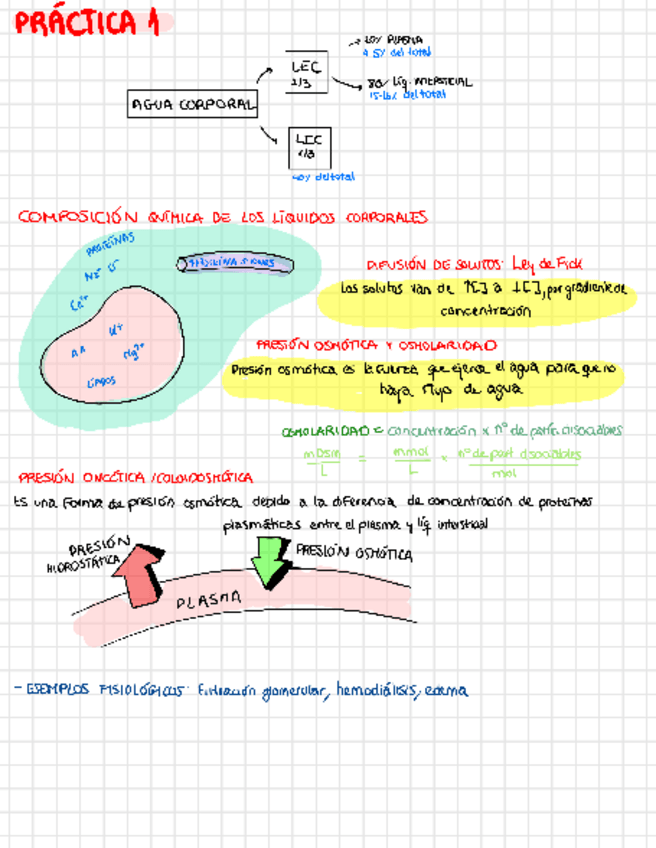 PRÁCTICA 1
20% PLASMA
4-5% del total
LEC
1/3
80% Líq. INTERSTICIAL
15-16% del total
AGUA CORPORAL
40% del total
COMPOSICIÓN QUÍMICA DE LOS LÍQUIDOS CORPORALES
PROTEÍNAS
Ca²⁺
K⁺
AA
Mg²⁺
DIFUSIÓN DE SOLUTOS: Ley de Fick
Los solutos van de ↑[ ] a ↓[ ], por gradiente de
concentración
PRESIÓN OSMÓTICA Y OSMOLARIDAD
Presión osmótica es la fuerza que ejerce el agua para que no
haya flujo de agua
OSMOLARIDAD = concentración x nº de partíc. disociables
mOsm / L = mmol / L x nº de part disociables / mol
PRESIÓN ONCÓTICA / COLOIDOSMÓTICA
Es una forma de presión osmótica debido a la diferencia de concentración de proteínas
plasmáticas entre el plasma y líq intersticial
PRESIÓN
HIDROSTÁTICA
PRESIÓN OSMÓTICA
PLASMA
- EJEMPLOS FISIOLÓGICOS: Filtración glomerular, hemodiálisis, edema